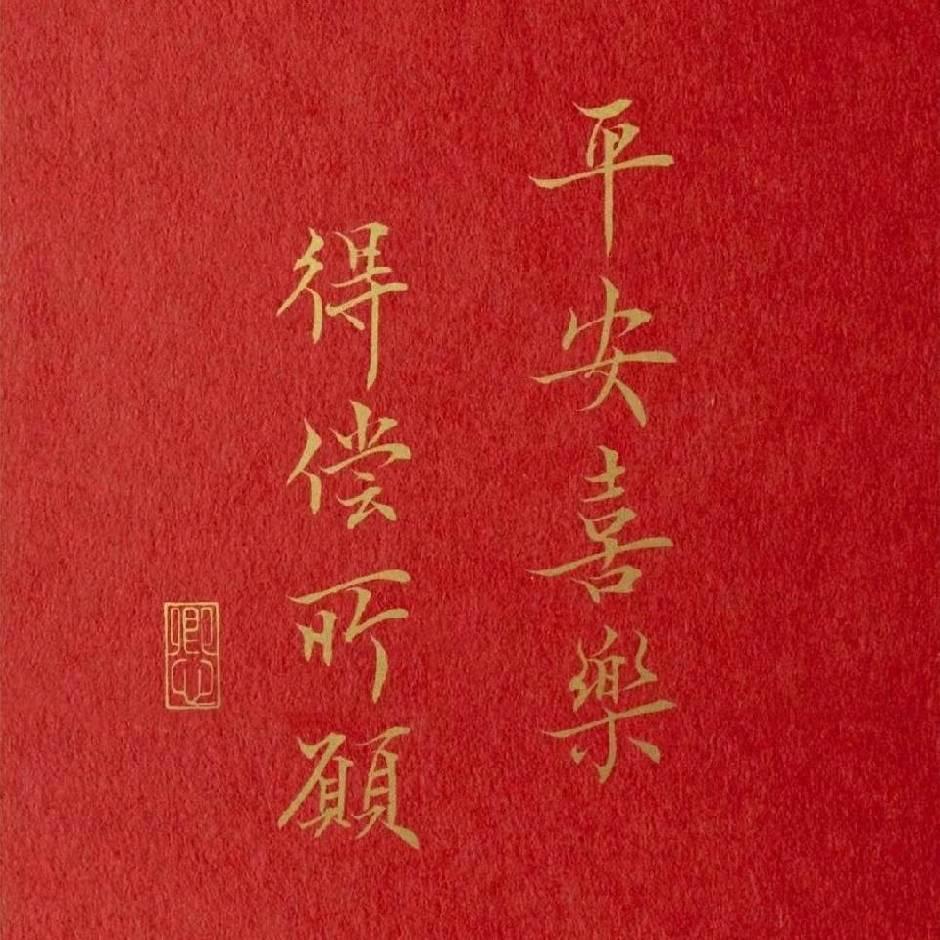 平安喜樂
得偿所願